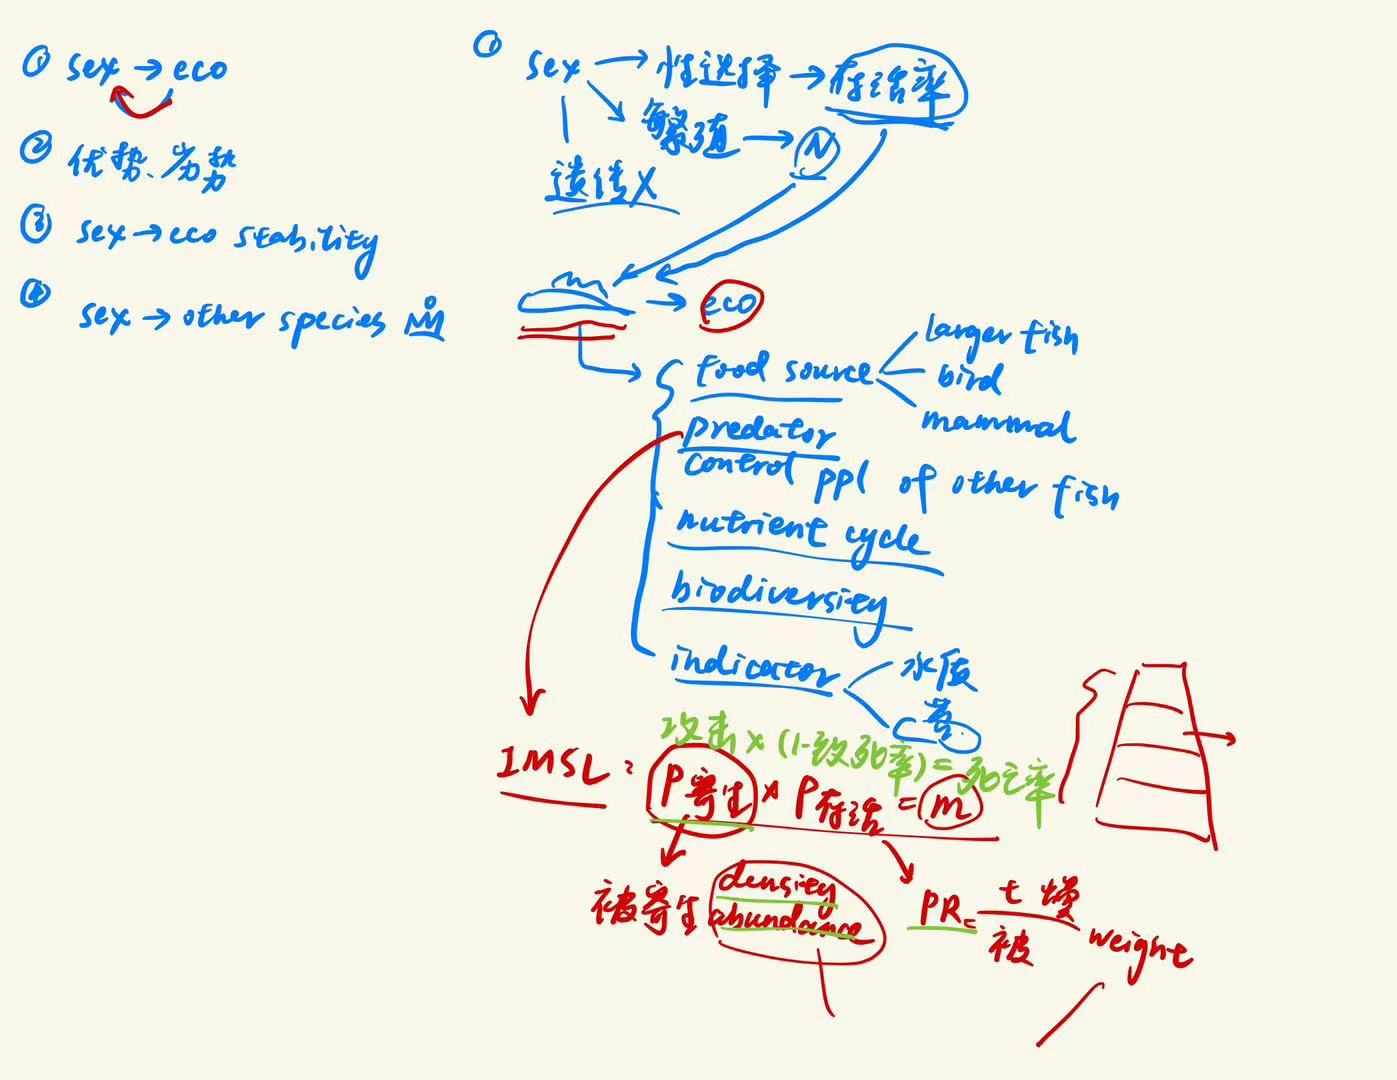 ① sex → eco
② 优势、劣势
③ sex → eco stability
④ sex → other species
① sex → 性选择 → 存活率
繁殖 → N
遗传 X
→ eco
food source
larger fish
bird
mammal
predator
control ppl of other fish
nutrient cycle
biodiversity
indicator
水质
攻击 × (1-致死率) = 死亡率
IMSL: P寄生 × P存活 = m
被寄生 density
abundance
PR = t 慢 / 被
weight